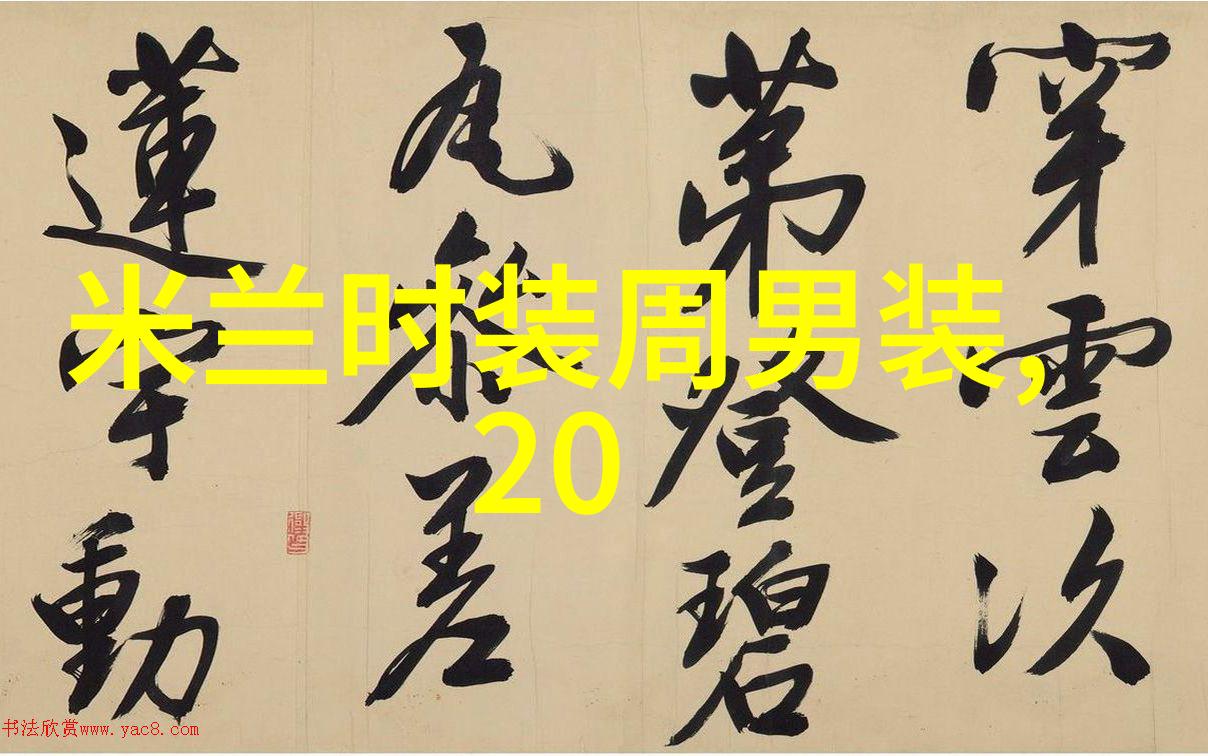 穿雲次
第登碧
瓦參差
蓮宇動
米兰时装周男装,
20
书法欣赏www.yac8.com